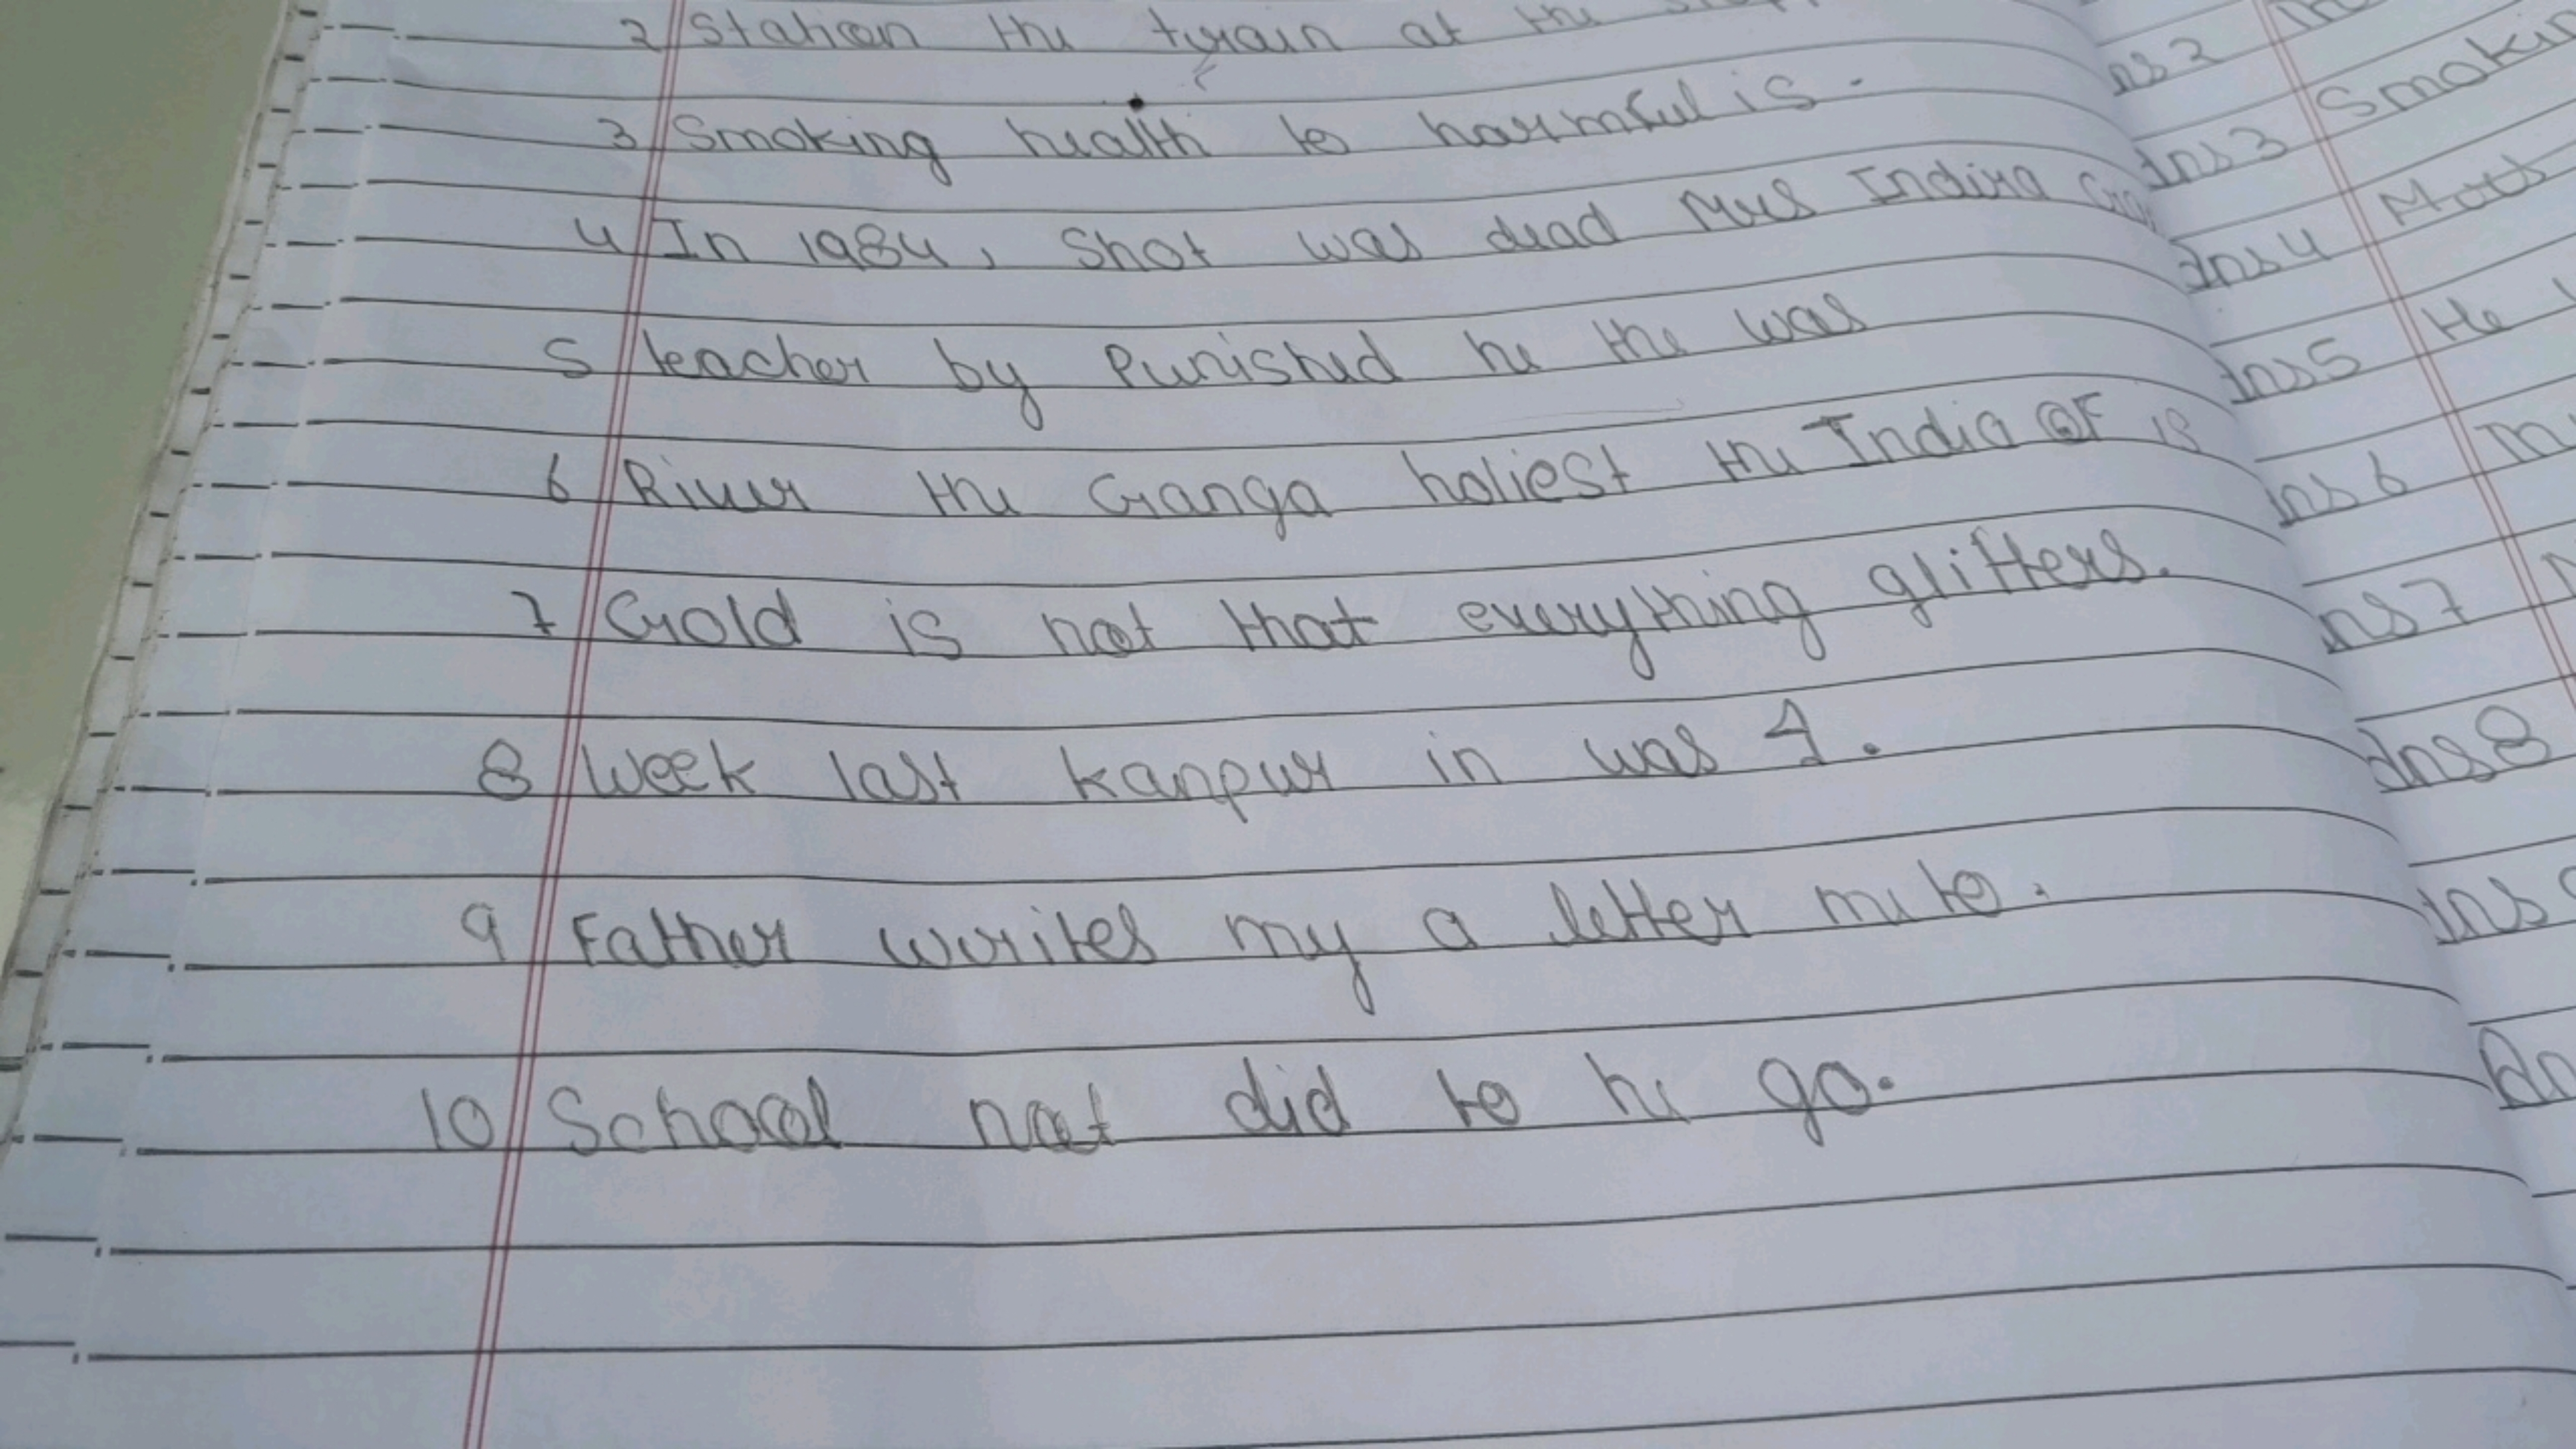 2 Station the train at the
3 Smoking health to harmful is.
4 In 1984, Shot was dead Mrs Indira
5 teacher by Punished he the was
6 River the Ganga holiest the India OF is
7 Gold is not that everything glitters.
8 Week last kanpur in was I.
9 Father writes my a letter me to.
10 School not did to he go.
ns 2
Ans 3 Smokin
Ans 4
Ans 5 He
Ans 6
ns 7
Ans 8
Ans